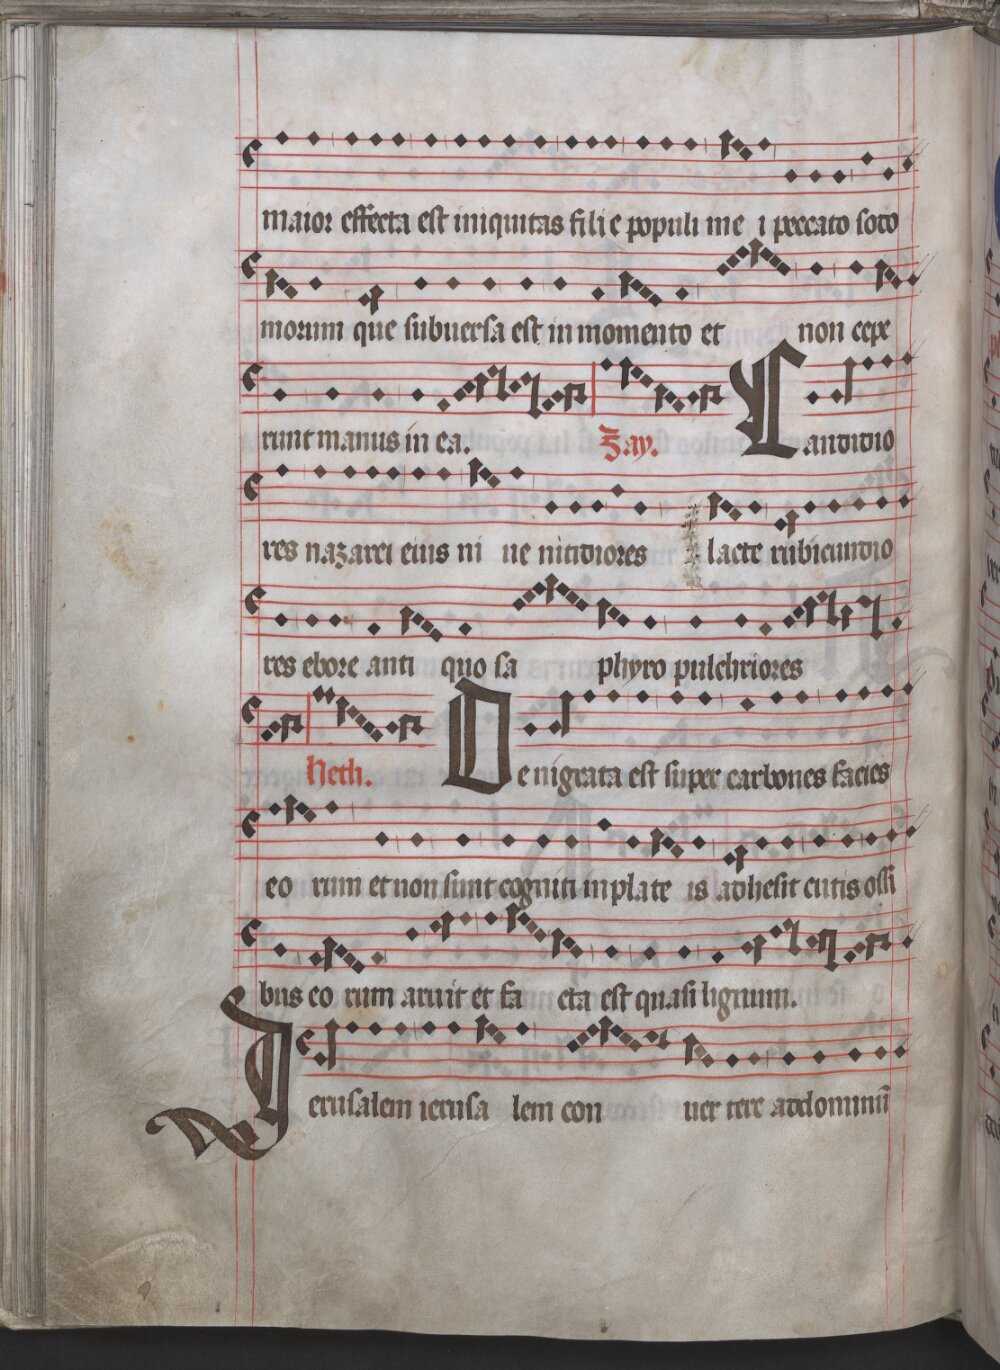 maior effecta est iniquitas fili e populi me i peccato sodo
morum que subuersa est in momento et non cepe
runt manus in ea. Zay. Candidio
res nazarei eius ni ue nitidiores lacte rubicundio
res ebore anti quo sa phyro pulchriores
Heth. De nigrata est super carbones facies
eo rum et non sunt cogniti in plate is adhesit cutis ossi
bus eo rum aruit et fa cta est quasi lignum.
Jerusalem ierusa lem con uer tere ad dominū